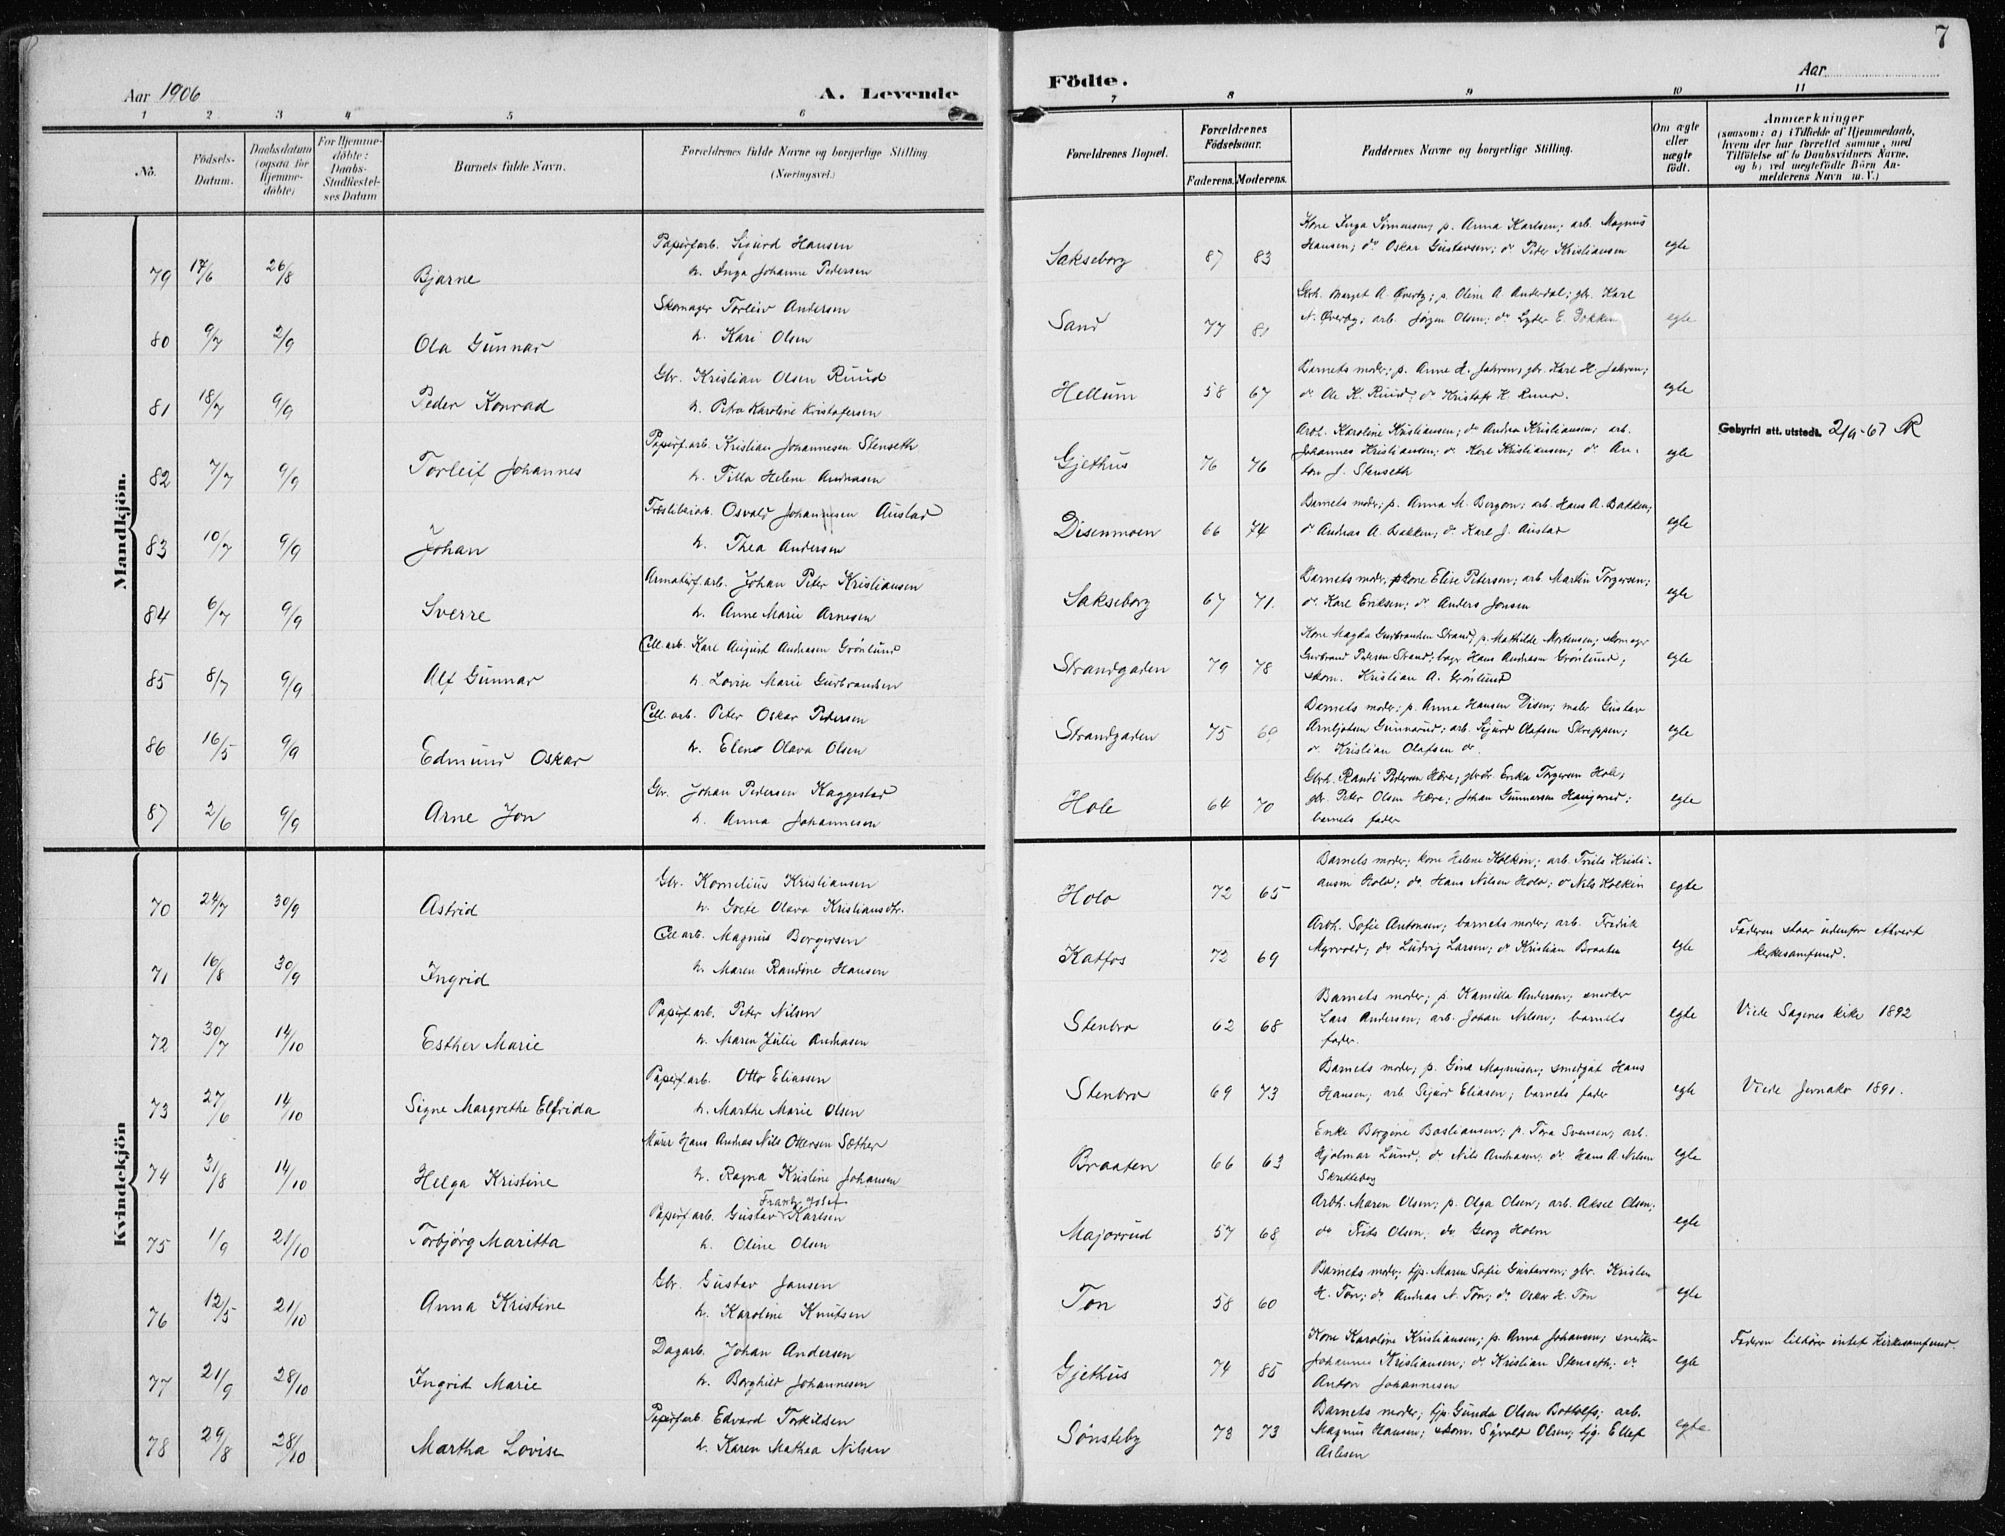 7
Aar 1906
A. Levende
Födte.
Aar
1 2 3 4 5 6 7 8 9 10 11
No.
Födsels-
Datum.
Daabsdatum
(ogsaa for
Hjemme-
döbte)
For Hjemme-
döbte:
Daabs-
Stadfæstel-
ses Datum
Barnets fulde Navn.
Forældrenes fulde Navne og borgerlige Stilling
(Næringsvei.)
Forældrenes Bopæl.
Forældrenes
Födselsaar.
Faderens. Moderens.
Faddernes Navne og borgerlige Stilling.
Om ægte
eller
uægte
födt.
Anmærkninger
(saasom: a) i Tilfælde af Hjemmedaab,
hvem der har forrettet samme, med
Tilföielse af to Daabsvidners Navne,
og b) ved uægtefödte Börn An-
melderens Navn m. V.)
Mandkjön.
79 17/6 26/8 Bjarne
Papirfarb. Sigurd Hansen
h. Inga Johanne Pedersen
Sakseborg 87 83
Kone Inga Simensen; p. Anna Karlsen; arb. Magnus
Hansen; do Oskar Gustavsen; do Peter Kristiansen
egte
80 9/7 2/9 Ola Gunnar
Skomager Torleiv Andersen
h. Kari Olsen
Sand 77 81
Gbrh. Marget A. Øverby; p. Oline A. Anderdal; gbr. Karl
N. Øverby; arb. Jørgen Olsen; do Lyder E. Bakken
egte
81 18/7 9/9 Peder Konrad
Gbr. Kristian Olsen Ruud
h. Petra Karoline Kristofersen
Hellum 58 67
Barnets moder; p. Anne H. Jahren; gbr. Karl H. Jahren;
do Ole K. Ruud; do Kristofr K. Ruud.
egte
82 7/7 9/9 Torleif Johannes
Papirf.arb. Kristian Johannesen Stenseth
h. Tilla Helene Andreasen
Gjethus 76 76
Arbh. Karoline Kristiansen; do Andrea Kristiansen; arb.
Johannes Kristiansen; do Karl Kristiansen; do An-
ton J. Stenseth
egte
Gebyrfri att. utstedt. 2/9-67
83 10/7 9/9 Johan
Træsliberiarb. Osvald Johannesen Austad
h. Thea Andersen
Disenmoen 66 74
Barnets moder; p. Anna M. Bergan; arb. Hans A. Bakken;
do Andreas A. Bakken; do Karl J. Austad
egte
84 6/7 9/9 Sverre
Armaturf.arb. Johan Peter Kristiansen
h. Anne Marie Arnesen
Sakseborg 67 71.
Barnets moder; kone Elise Petersen; arb. Martin Torgersen;
do Karl Eriksen; do Anders Jonsen
egte
85 8/7 9/9 Alf Gunnar
Cell.arb. Karl August Andreasen Grönlund
h. Lovise Marie Gulbrandsen
Strandgaden 79 78
Kone Magda Gulbrandsen Strand; p. Mathilde Mortensen; skomager
Gulbrand Pedersen Strand; bager Hans Andreasen Grönlund;
skom. Kristian A. Grönlund
egte
86 16/5 9/9 Edmund Oskar
Cell.arb. Peter Oskar Pedersen
h. Elen Olava Olsen
Strandgaden 75 69
Barnets moder; p. Anna Hansen Disen; maler Gustav
Arnljotsen Gunnerud; arb. Sigurd Olafsen Skreppen;
do Kristian Olafsen do.
egte
87 2/6 9/9 Arne Jon
Gbr. Johan Pedersen Kaggestad
h. Anna Johannesen
Hole 64 70
Gbrh. Randi Pedersen Hære; gbrdr. Erika Torgersen Hole;
gbr. Peter Olsen Hære; Johan Gunnarsen Haugerud;
barnets fader
egte
Kvindekjön
70 24/7 30/9 Astrid
Gbr. Kornelius Kristiansen
h. Grete Olava Kristiansdtr.
Holo 72 65
Barnets moder; kone Helene Kolkin; arb. Frits Kristi-
ansen Holo; do. Hans Nilsen Holo; do Nils Kolkin
egte
71 16/8 30/9 Ingrid
Cell.arb. Magnus Borgersen
h. Maren Randine Hansen
Katfos 72 69
Arbh. Sofie Antonsen; barnets moder; arb. Fredrik
Myrvold; do Ludvig Larsen; do Kristian Braaten
egte
Faderen staar udenfor ethvert
kirkesamfund.
72 30/7 14/10 Esther Marie
Papirf.arb. Peter Nilsen
h. Maren Julie Andreasen
Stenbro 62 68
Barnets moder; p. Kamilla Andersen; snedker
Lars Andersen; arb. Johan Nilsen; barnets
fader.
egte
Viede Sagenes kirke 1892
73 27/6 14/10 Signe Margrethe Elfrida
Papirf.arb. Otto Eliassen
h. Marthe Marie Olsen
Stenbro 69 73
Barnets moder; p. Gina Magnusen; smedgut Hans
Hansen; arb. Sigurd Eliasen; barnets fader
egte
Viede Jevnaker 1891.
74 31/8 14/10 Helga Kristine
Murer Hans Andreas Nils Ottersen Sæther
h. Ragna Kristine Johansen
Braaten 66 63
Enke Bergine Bastiansen; p. Tora Svensen; arb.
Hjalmar Lund; do Nils Andreasen; do Hans A. Nilsen
Skutteborg
egte
75 1/9 21/10 Torbjørg Maritta
Frantz Josef
Papirf.arb. Gustav Karlsen
h. Oline Olsen
Majorrud 57 68
Arbh. Maren Olsen; p. Olga Olsen; arb. Aksel Olsen;
do Frits Olsen; do Georg Holm
egte
76 12/5 21/10 Anna Kristine
Gbr. Gustav Jansen
h. Karoline Knutsen
Ton 58 60
Barnets moder; tjp. Maren Sofie Gustavsen; gbr. Kristen
H. Ton; do Andreas N. Ton; do Oskar H. Ton
egte
77 21/9 28/10 Ingrid Marie
Dagarb. Johan Andersen
h. Borghild Johannesen
Gjethus 74 85
Kone Karoline Kristiansen; p. Anna Johansen; snedker
Johannes Kristiansen; do Kristian Stenseth; do
Anton Johannesen
egte
Faderen tilhører intet kirkesamfund.
78 29/8 28/10 Martha Lovise
Papirfarb. Edvard Torkilsen
h. Karen Mathea Nilsen
Sønsteby 73 73
Barnets moder; tjp. Gunda Olsen Bottolfs; arb.
Magnus Hansen; skom. Sigvald Olsen; tjg. Ellef
Aslesen
egte